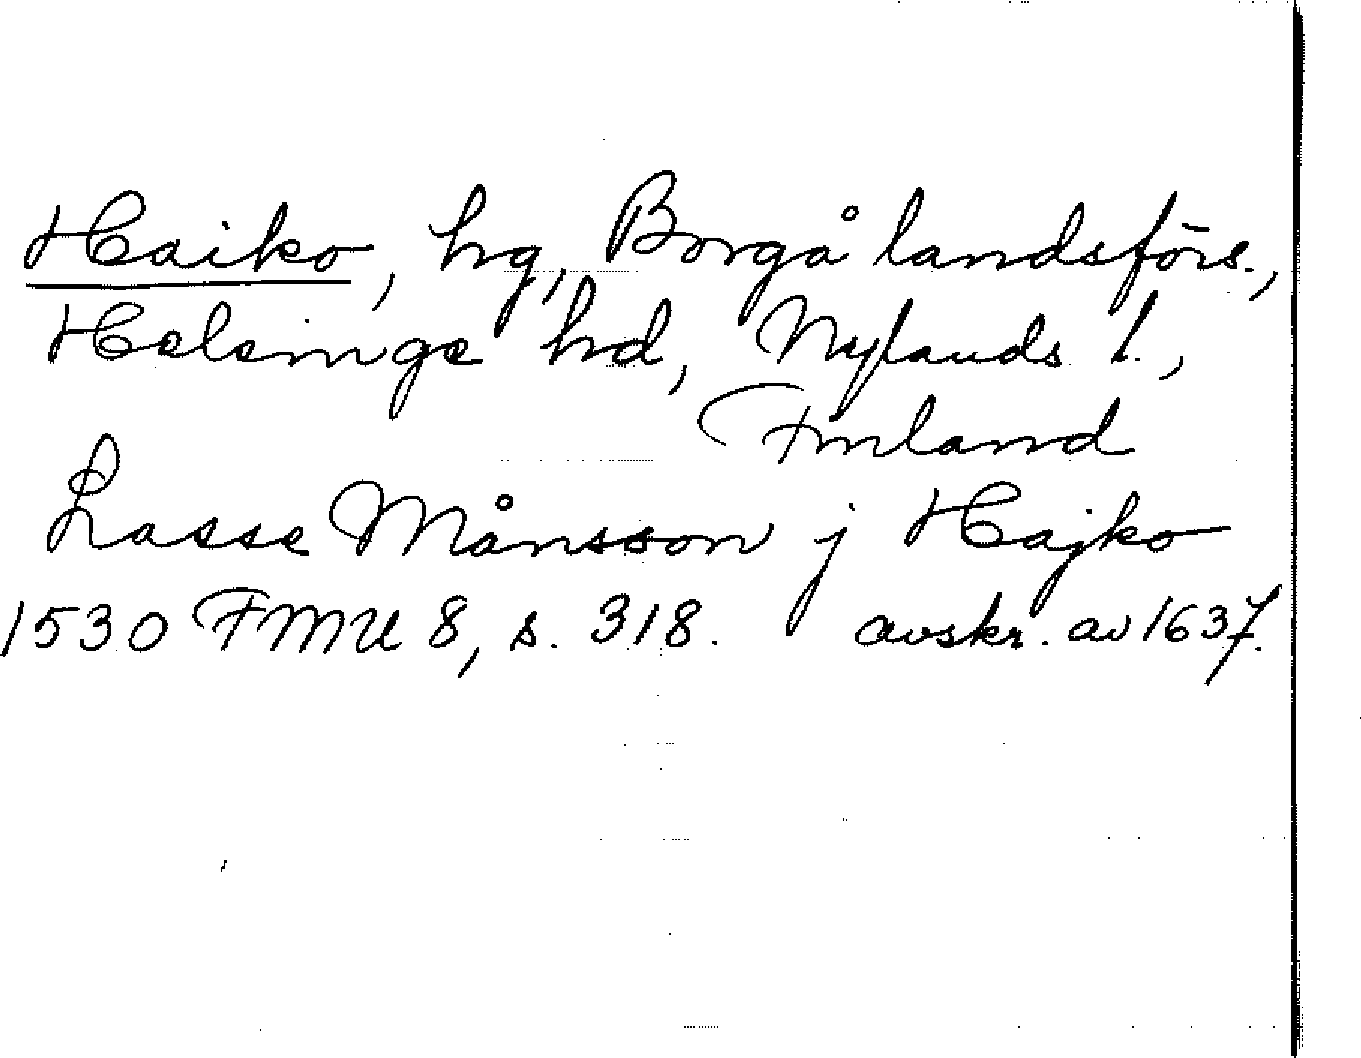 Haiko, hg, Borgå landsförs.,
Helsinge hd, Nylands l.,
Finland
Lasse Månsson j Hajko
1530 FMU 8, s. 318. avskr. av 1637.